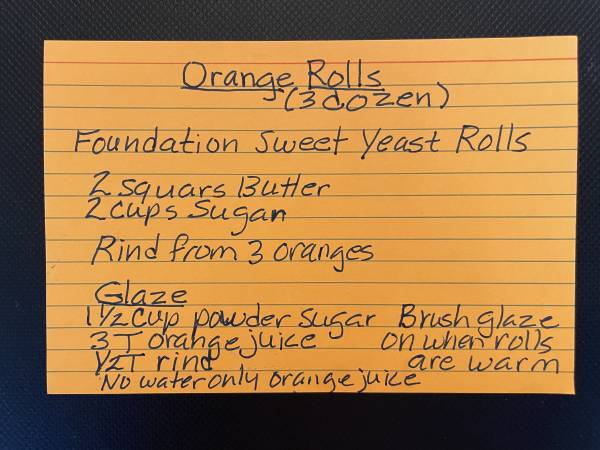 Orange Rolls
(3 dozen)
Foundation Sweet Yeast Rolls
2 squars Butter
2 cups Sugar
Rind from 3 oranges
Glaze
1 1/2 cup powder sugar Brush glaze
3 T orange juice on when rolls
1/2 T rind are warm
No water only orange juice